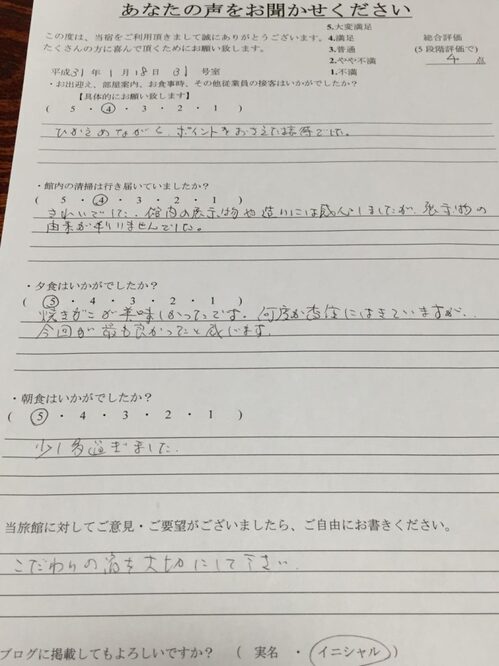 あなたの声をお聞かせください
この度は、当宿をご利用頂きまして誠にありがとうございます。
たくさんの方に喜んで頂くためにお願い致します。
5.大変満足
4.満足
3.普通
2.やや不満
1.不満
総合評価
(5段階評価で)
4 点
平成31年1月18日 31号室
・お出迎え、部屋案内、お食事時、その他従業員の接客はいかがでしたか?
【具体的にお願い致します】
( 5 ・ 4 ・ 3 ・ 2 ・ 1 )
ひかえめながら、ポイントをおさえた接待でした。
・館内の清掃は行き届いていましたか?
( 5 ・ 4 ・ 3 ・ 2 ・ 1 )
きれいでした。館内の展示物や造りには感心しましたが、展示物の
由来が判りませんでした。
・夕食はいかがでしたか?
( 5 ・ 4 ・ 3 ・ 2 ・ 1 )
焼きがこが美味しかったです。何度か香住にはきていますが、
今回が最も良かったと感じます。
・朝食はいかがでしたか?
( 5 ・ 4 ・ 3 ・ 2 ・ 1 )
少し多過ぎました。
当旅館に対してご意見・ご要望がございましたら、ご自由にお書きください。
こだわりの宿を大切にして下さい
ブログに掲載してもよろしいですか? ( 実名 ・ イニシャル )